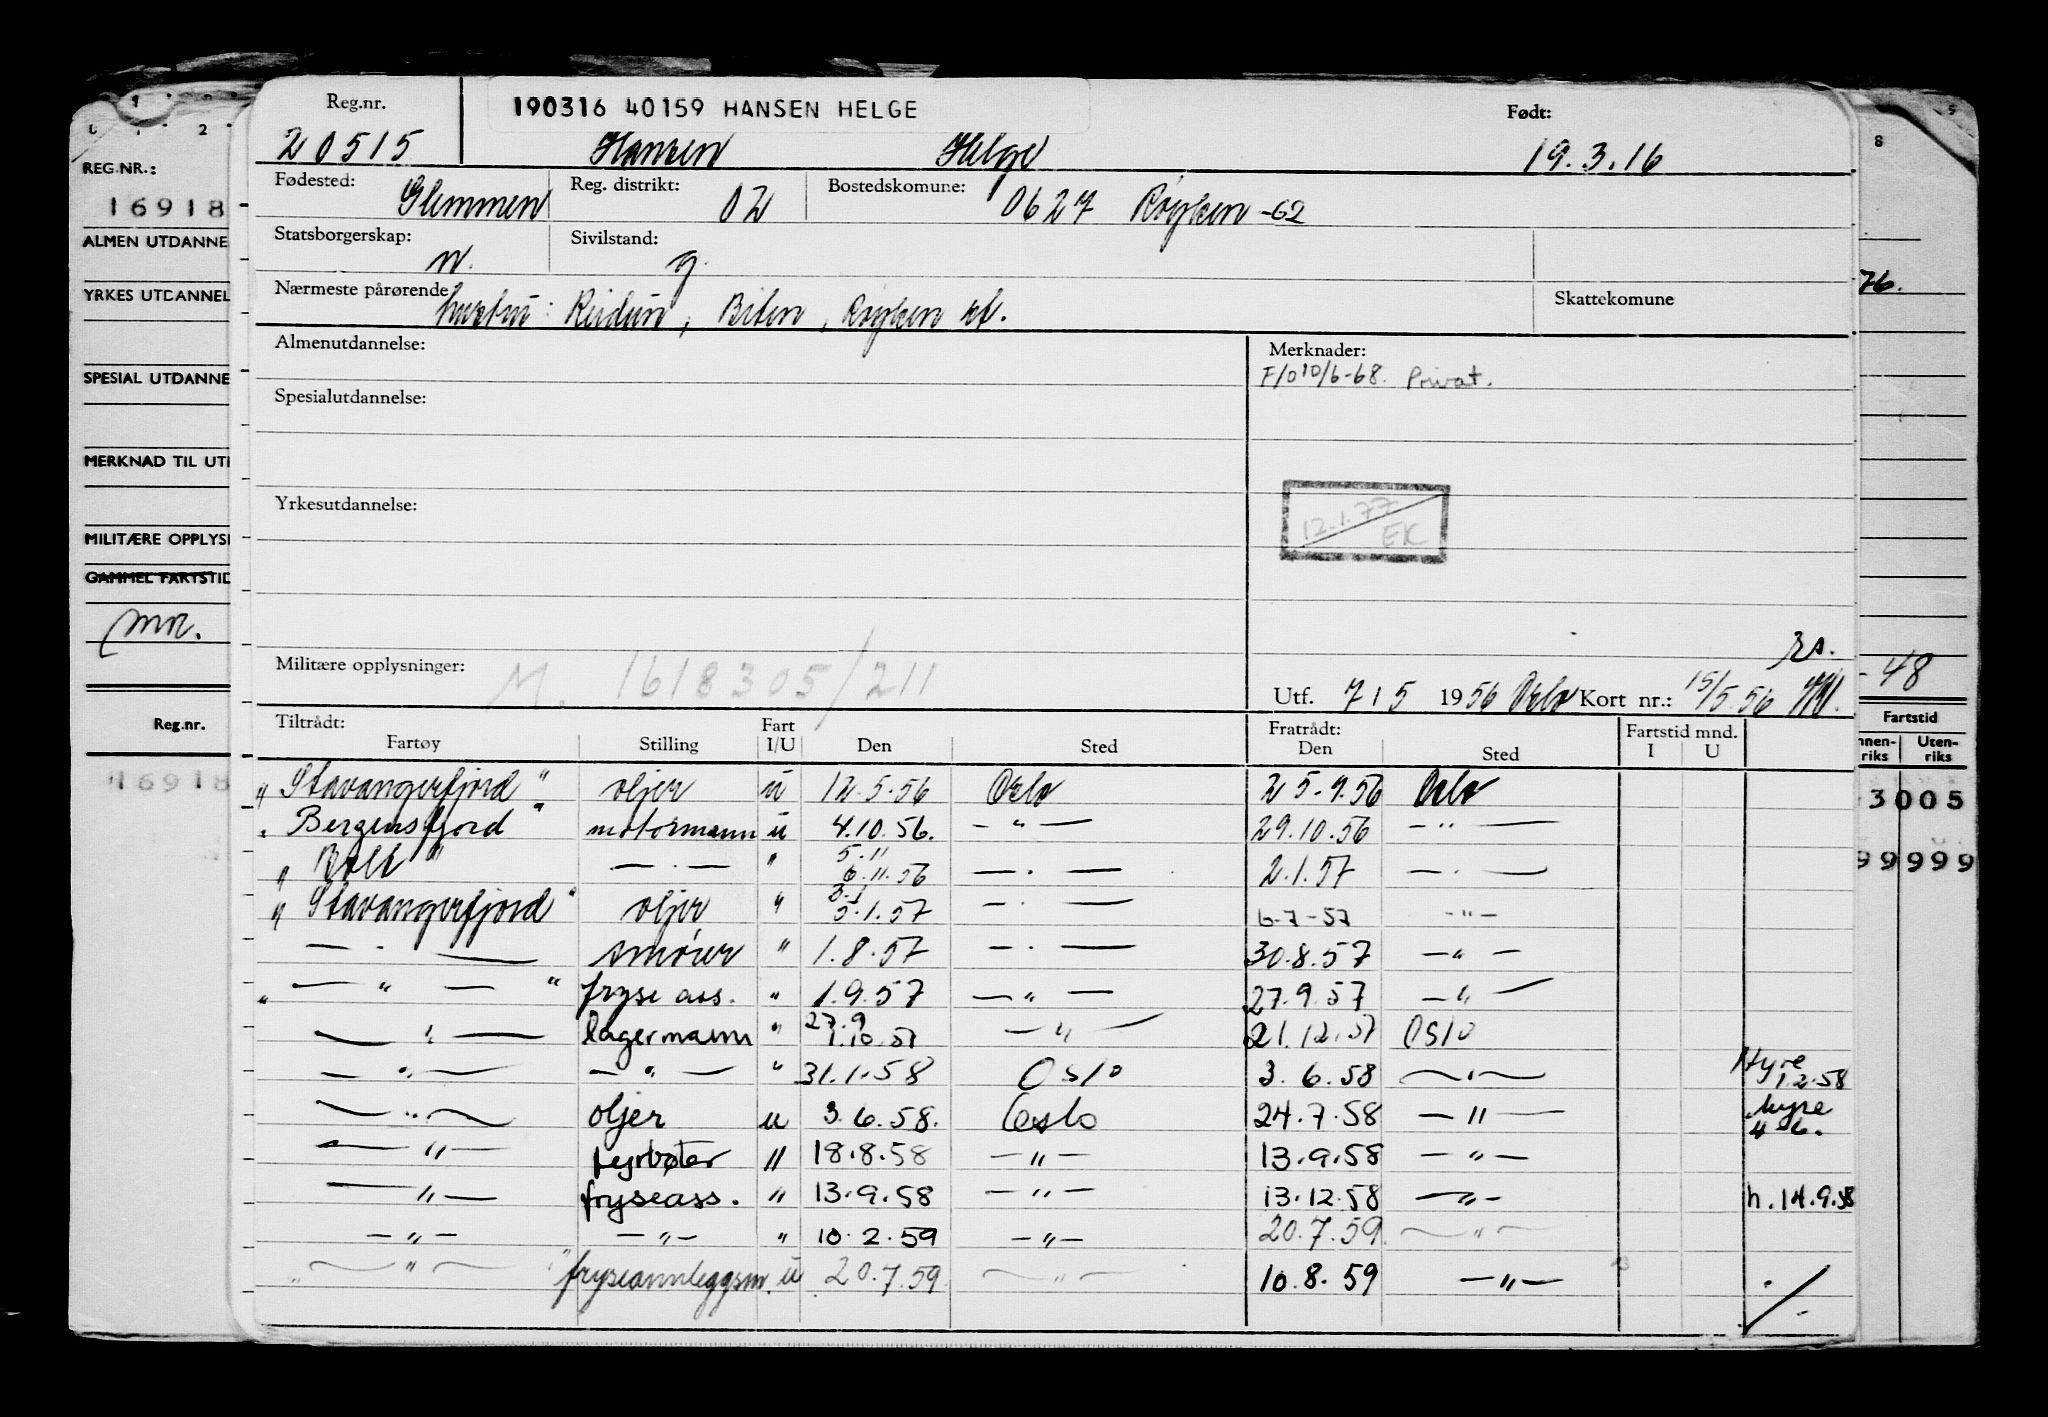 Reg.nr. 190316 40159 HANSEN HELGE Født:
20515 Hansen Helge 19.3.16
Fødested: Glemmen Reg. distrikt: 02 Bostedskomune: 0627 Røyken -62
Statsborgerskap: n. Sivilstand: g.
Nærmeste pårørende hustru: Reidun, Biten, Røyken st. Skattekomune
Almenutdannelse: Merknader:
F/O 10/6-68. Privat.
Spesialutdannelse:
Yrkesutdannelse:
12.1.77
EK
rs.
Militære opplysninger: M. 1618305/211
Utf. 7 / 5 1956 Oslo Kort nr.: 15/5.56
Tiltrådt: Fart Fratrådt: Fartstid mnd.
Fartøy Stilling I/U Den Sted Den Sted I U
"Stavangerfjord" oljer u 12.5.56 Oslo 25.9.56 Oslo
"Bergensfjord" motormann u 4.10.56. — " — 29.10.56 — " —
5.11
" " — " — " 6.11.56 — " — 2.1.57 — " —
3.1
"Stavangerfjord" oljer " 5.1.57 — " — 6-7-57 - " -
— " — smører " 1.8.57 — " — 30.8.57 — " —
" — " — " fryse ass. " 1.9.57 — " — 27.9.57 — " —
27.9
— " — lagermann " 1.10.57 — " — 21.12.57 Oslo
— " — — " — " 31.1.58 Oslo 3.6.58 — " — Hyre 1.2.58
— " — oljer u 3.6.58. Oslo 24.7.58 — " — hyre 4.6.
— " — fyrbøter " 18.8.58 — " — 13.9.58 — " —
— " — fryseass. " 13.9.58 — " — 13.12.58 — " — h. 14.9.58
— " — — " — " 10.2.59 — " — 20.7.59. — " —
" — " — " fryseannleggsm. u 20.7.59. — " — 10.8.59 — " —
REG.NR.:
16918
ALMEN UTDANNE
YRKES UTDANNEL
SPESIAL UTDANNE
MERKNAD TIL UT
MILITÆRE OPPLYS
GAMMEL FARTSTID
mn.
Reg.nr.
16918
8
76.
-48
Fartstid
nnen-riks Uten-riks
3005
99999